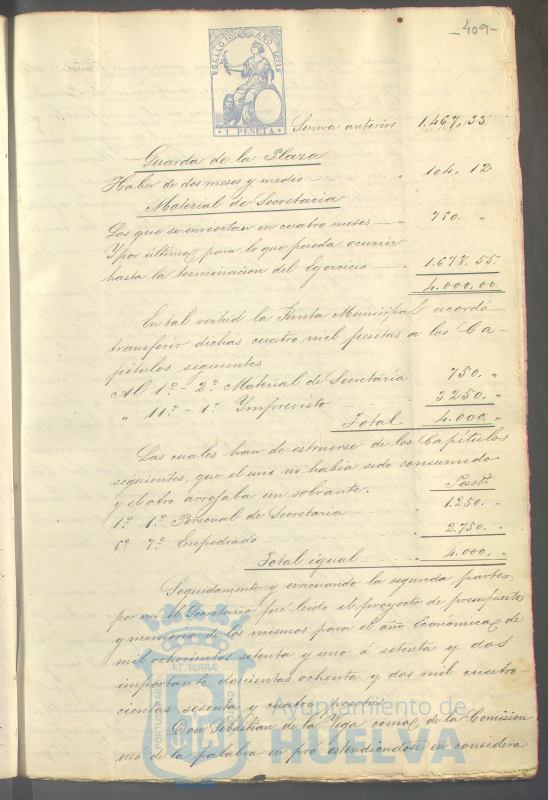 -409-
SELLO 10º AÑO 1871
1 PESETA
Suma anterior 1.467,33
Guarda de la Plaza
Haber de dos meses y medio 104,12
Material de Secretaria
Los que se inviertan en cuatro meses 750. "
Y por último, para lo que pueda ocurrir
hasta la terminacion del Ejercicio 1.678.55.
4.000,00.
En tal virtud la Junta Municipal acordó
transferir dichas cuatro mil pesetas a los Ca-
pítulos siguientes
Al 1º - 2º Material de Secretaria 750. "
" 11º - 1º Imprevisto 3250. "
Total 4.000. "
Las cuales han de estraerse de los Capítulos
siguientes, que el uno no habia sido consumido
y el otro arrojaba un sobrante.
1º 1º Personal de Secretaria 1.250. "
6º 7º Empedrado 2.750. "
Total igual 4.000. "
Seguidamente y evacuando la segunda parte,
por mi el Secretario fue leido el proyecto de presupuesto
y memoria de los mismos para el año Economico de
mil ochocientos setenta y uno á setenta y dos
importante doscientas ochenta y dos mil cuatro-
cientas sesenta y cuatro pesetas
Don Sebastian de la Vega como de la Comision
usó de la palabra en pró estendiendose en considera
PORTUS MARIS
ET TERRÆ
CUSTODIA
Ayuntamiento de
HUELVA